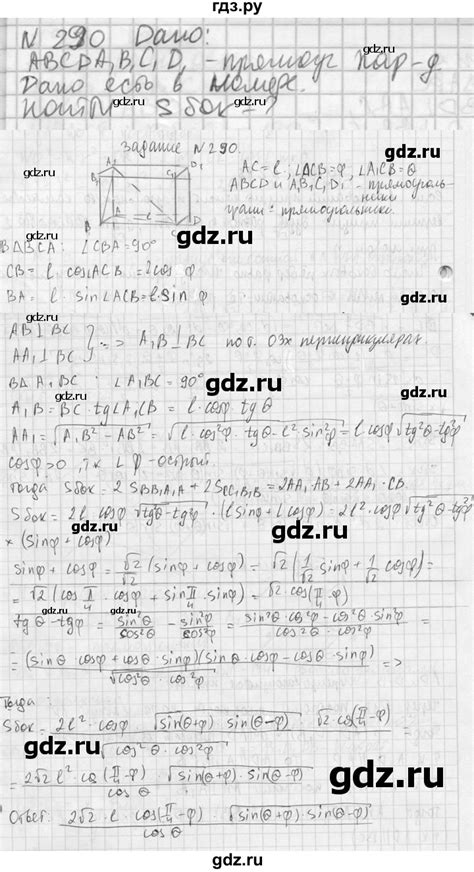 гдз.ру
N 290 Дано:
ABCDA₁B₁C₁D₁ - прямоуг пар-д
Дано есть в номере.
Найти Sбок = ?
задание N290.
AC = l; ∠ACB = φ, ∠A₁CB = θ
ABCD и A₁B₁C₁D₁ - прямоуголь-
ники
gdz.ru
gdz.ru
В ΔBCA: ∠CBA = 90°
CB = l · cos ACB = l cos φ
BA = l · sin ∠ACB = l · sin φ
gdz.ru
AB ⊥ BC
AA₁ ⊥ BC } => A₁B ⊥ BC по т. о 3х перпендикулярах
gdz.ru
В Δ A₁BC: ∠A₁BC = 90°
A₁B = BC · tg∠A₁CB = l · cosφ · tgθ
gdz.ru
AA₁ = √(A₁B² - AB²) = √(l² · cos²φ · tg²θ - l² sin²φ) = l cosφ √(tg²θ - tg²φ)
cosφ > 0, т.к ∠φ - острый
Тогда Sбок = 2 S_BB₁A₁A + 2S_CC₁B₁B = 2AA₁ · AB + 2AA₁ · CB.
Sбок = 2l cosφ √(tg²θ - tg²φ) · (l sinφ + l cosφ) = 2l² · cosφ √(tg²θ - tg²φ)
× (sinφ + cosφ)
gdz.ru
sinφ + cosφ = √2/√2 (sinφ + cosφ) = √2 (1/√2 sinφ + 1/√2 cosφ) =
= √2 (cos π/4 cosφ + sin π/4 sinφ) = √2 · cos(π/4 - φ)
gdz.ru
tg²θ - tg²φ = sin²θ/cos²θ - sin²φ/cos²φ = (sin²θ · cos²φ - sin²φ · cos²θ)/(cos²θ · cos²φ) =
= (sinθ cosφ + cosθ sinφ)(sinθ cosφ - cosθ · sinφ)/(cos²θ cos²φ) =>
gdz.ru
Тогда
Sбок = 2l² · cosφ √(sin(θ+φ) · sin(θ-φ))/√(cos²θ cos²φ) · √2 cos(π/4 - φ) =
gdz.ru
= 2√2 l² · cos(π/4 - φ) · √(sin(θ+φ) · sin(θ-φ))/cosθ
gdz.ru
Ответ: 2√2 · l · cos(π/4 - φ) · √(sin(θ+φ) · sin(θ-φ))/cosθ
gdz.ru